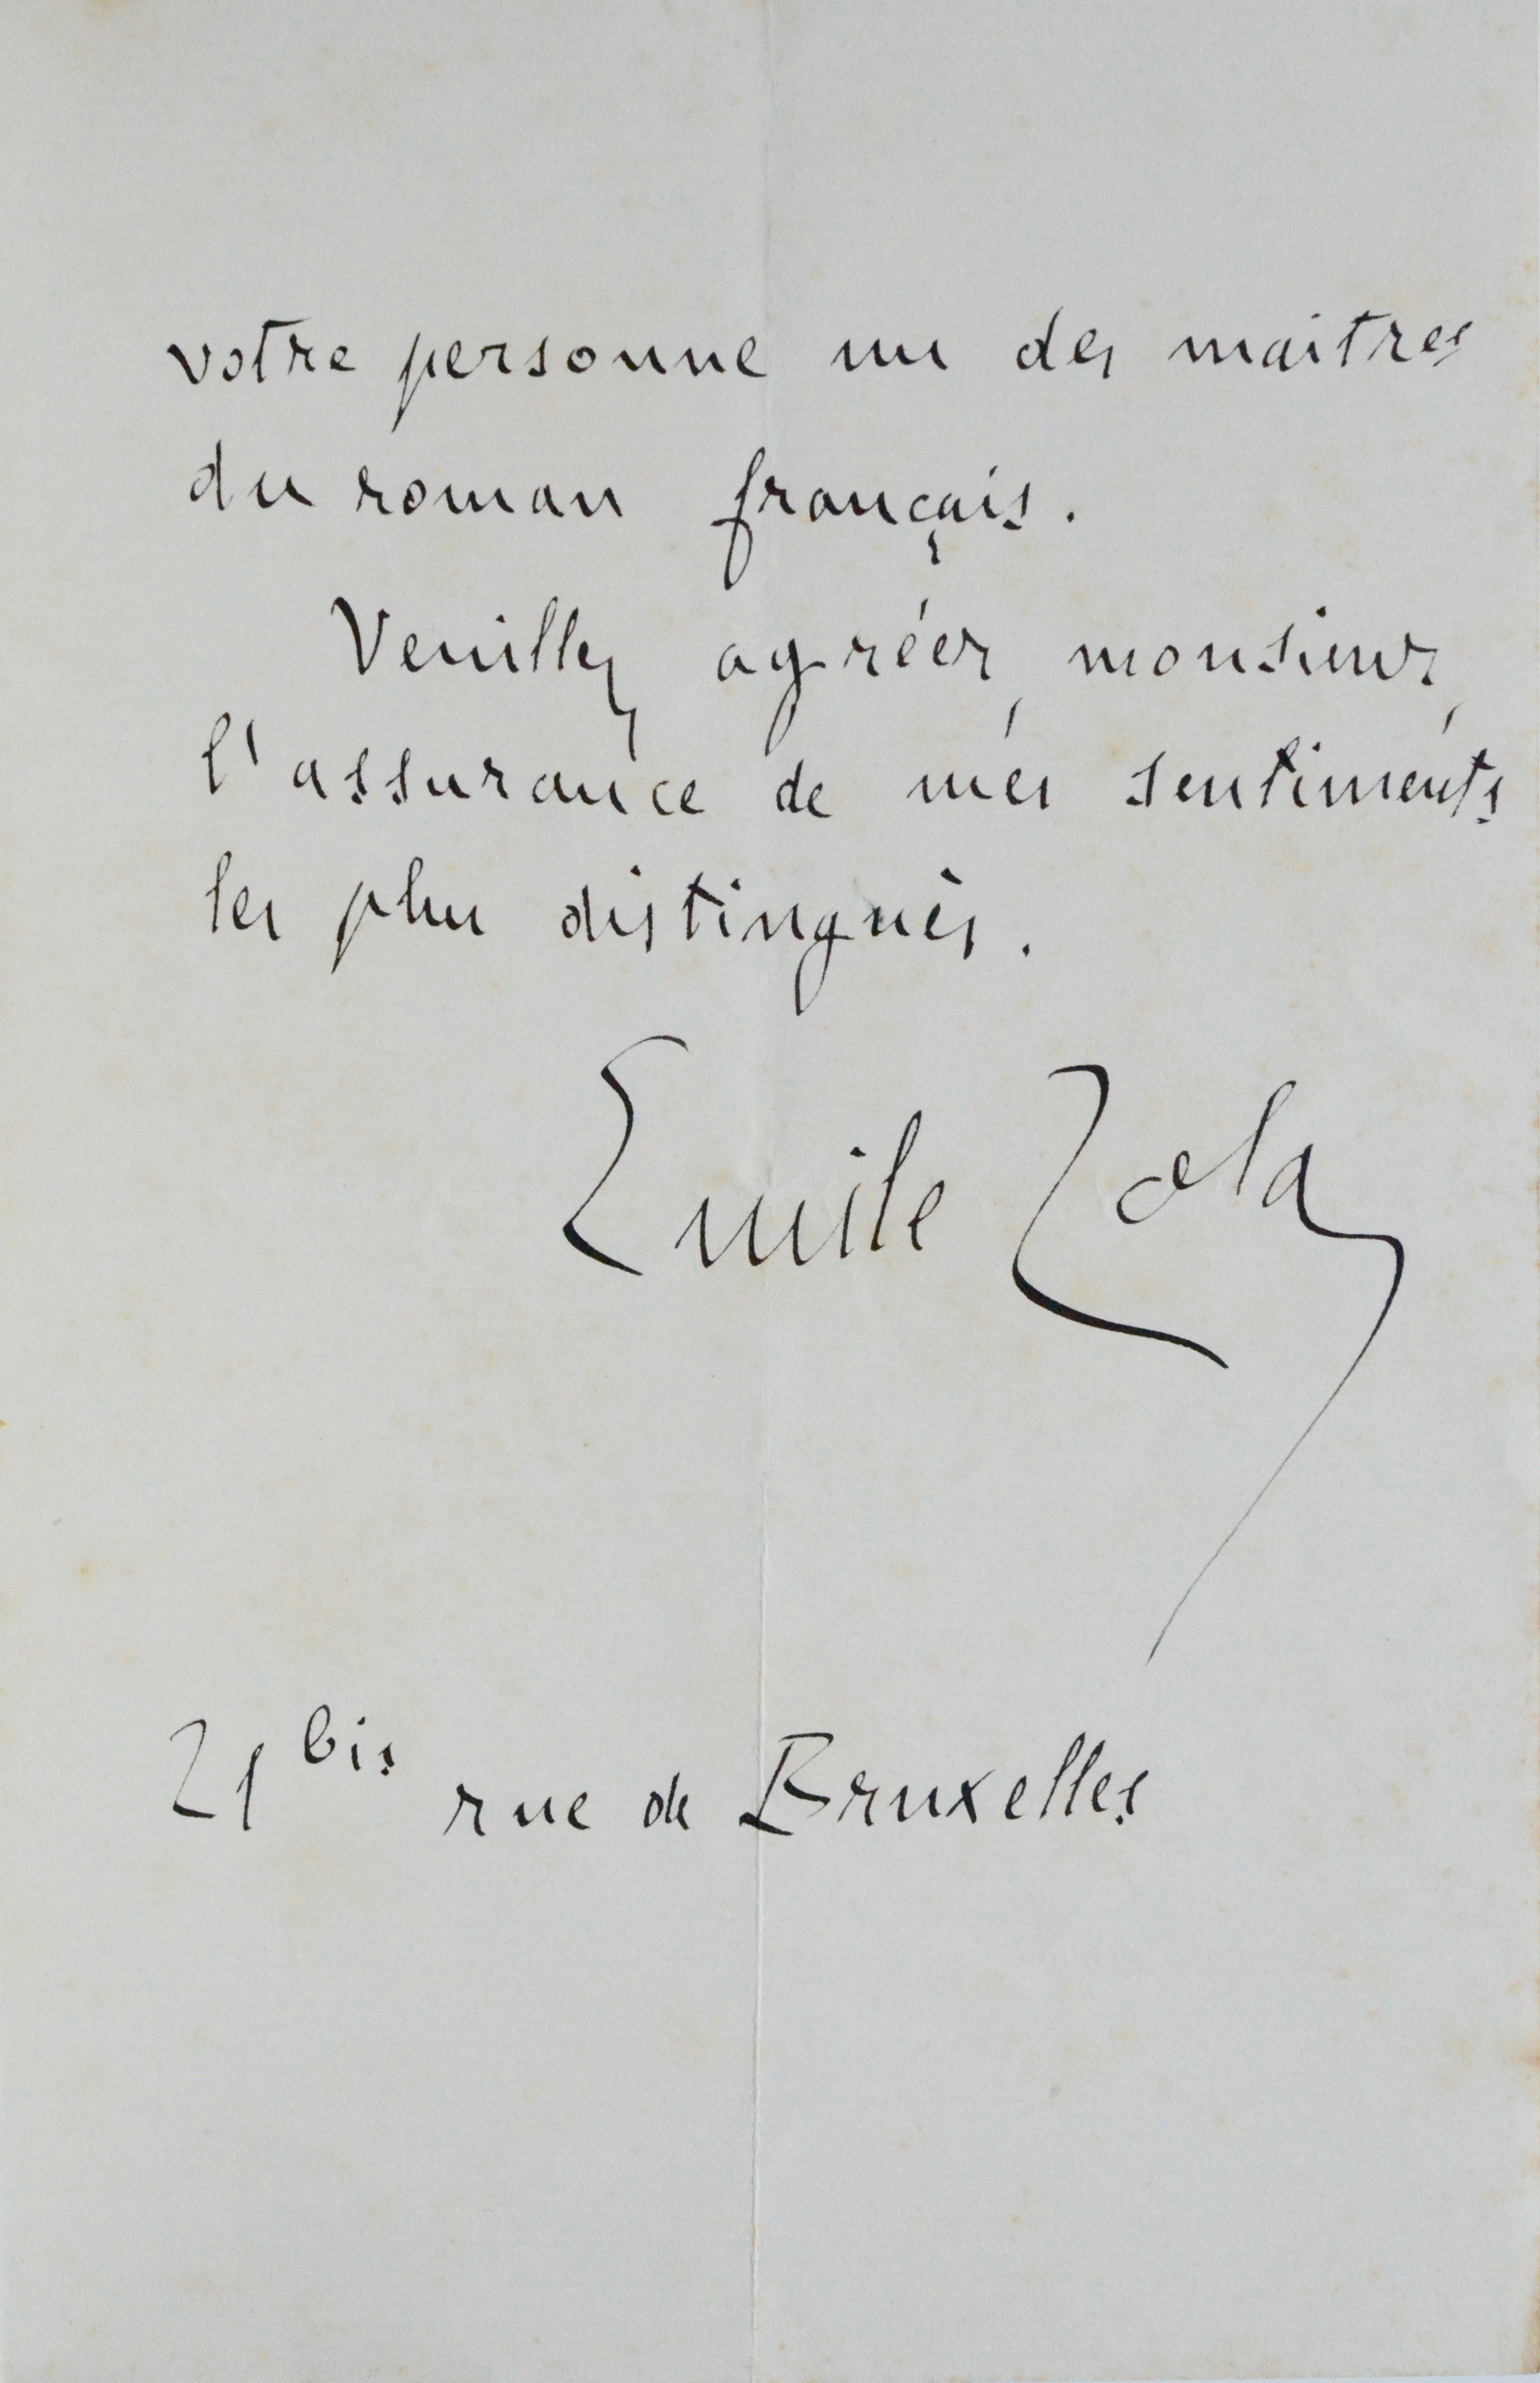 votre personne un des maitres
du roman français.
Veuillez agréer, monsieur,
l'assurance de mes sentiments
les plus distingués.
Emile Zola
21 bis rue de Bruxelles